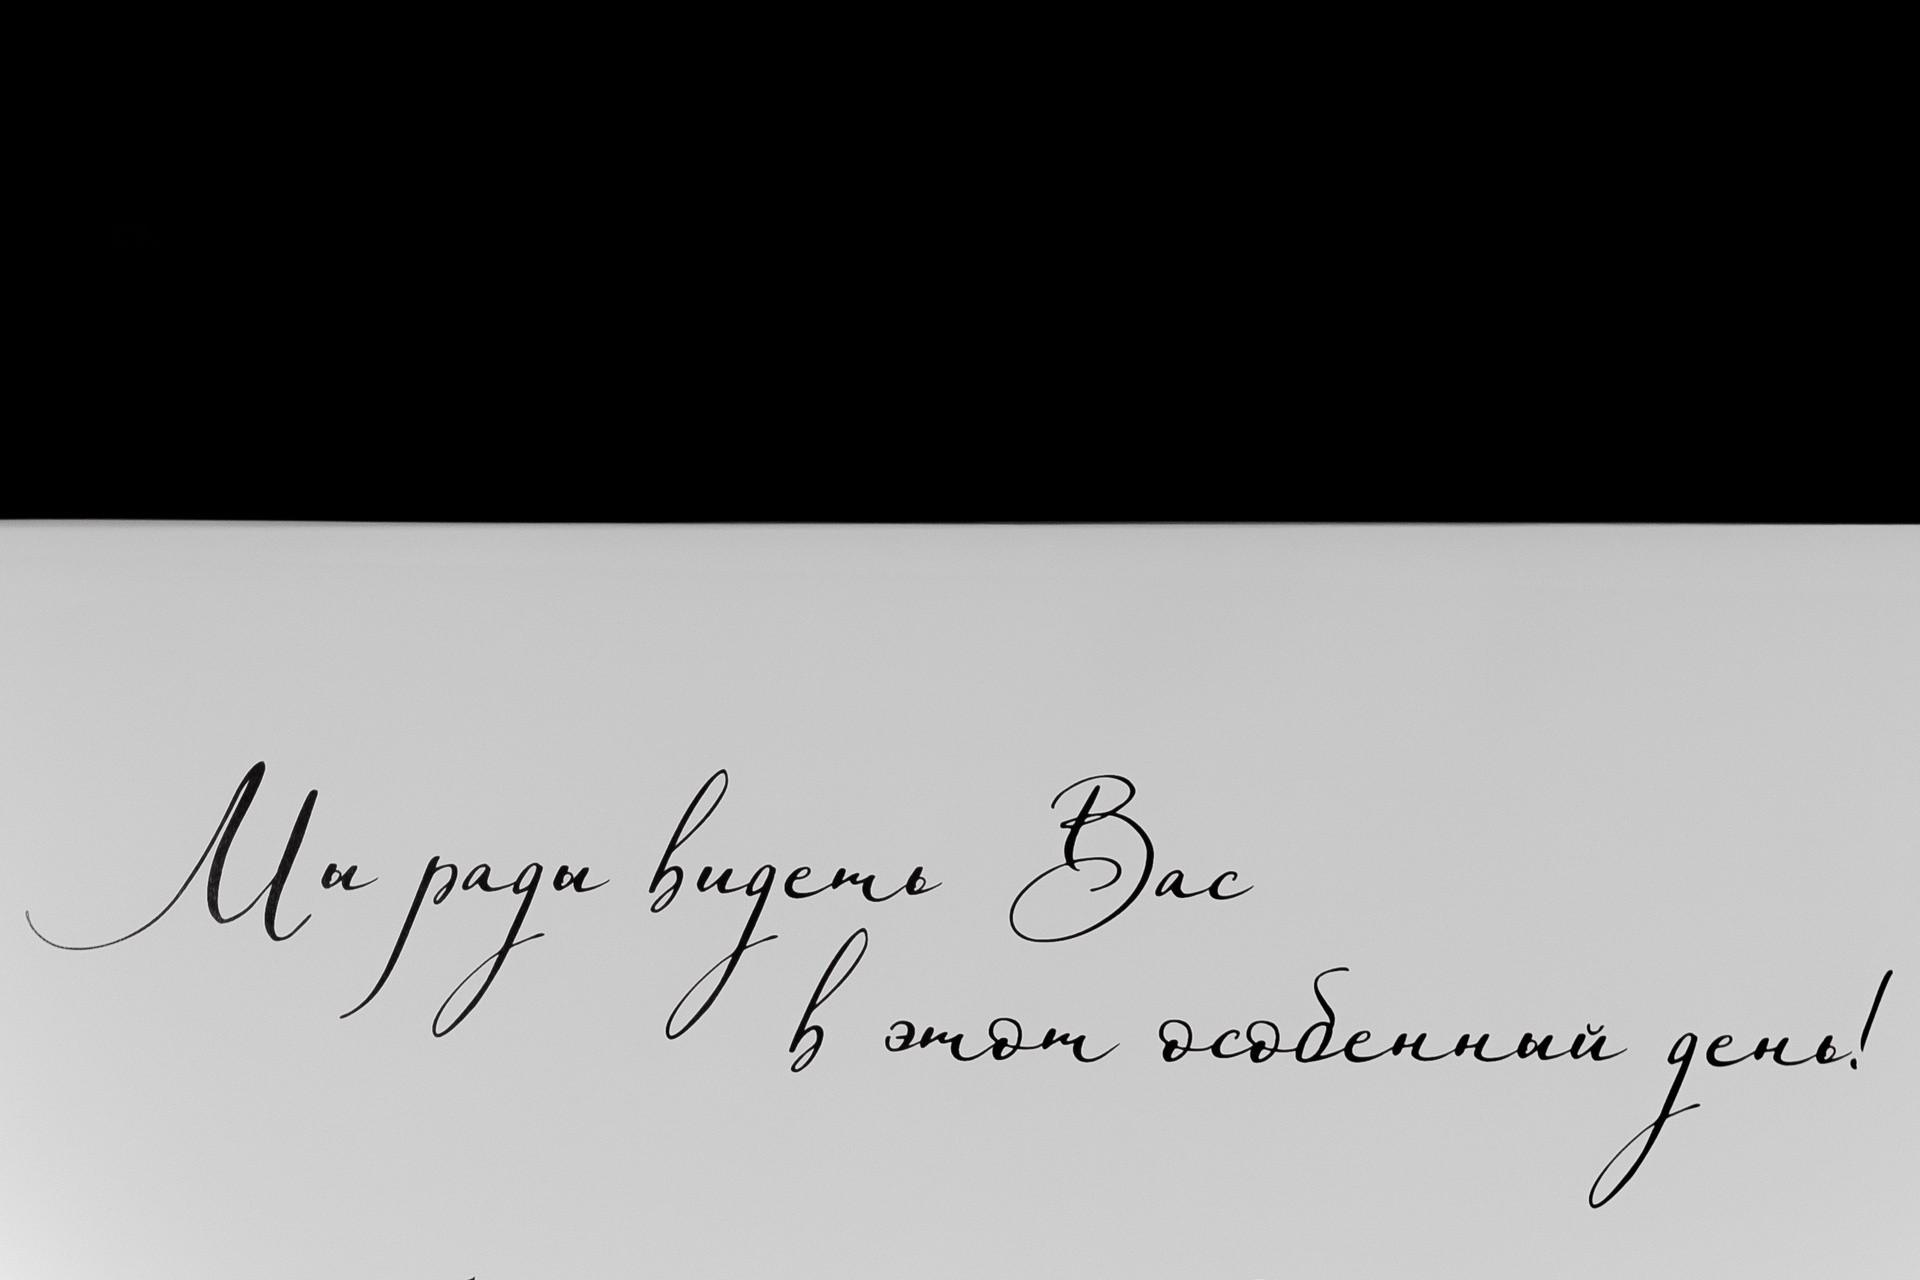 Мы рады видеть Вас
в этот особенный день!